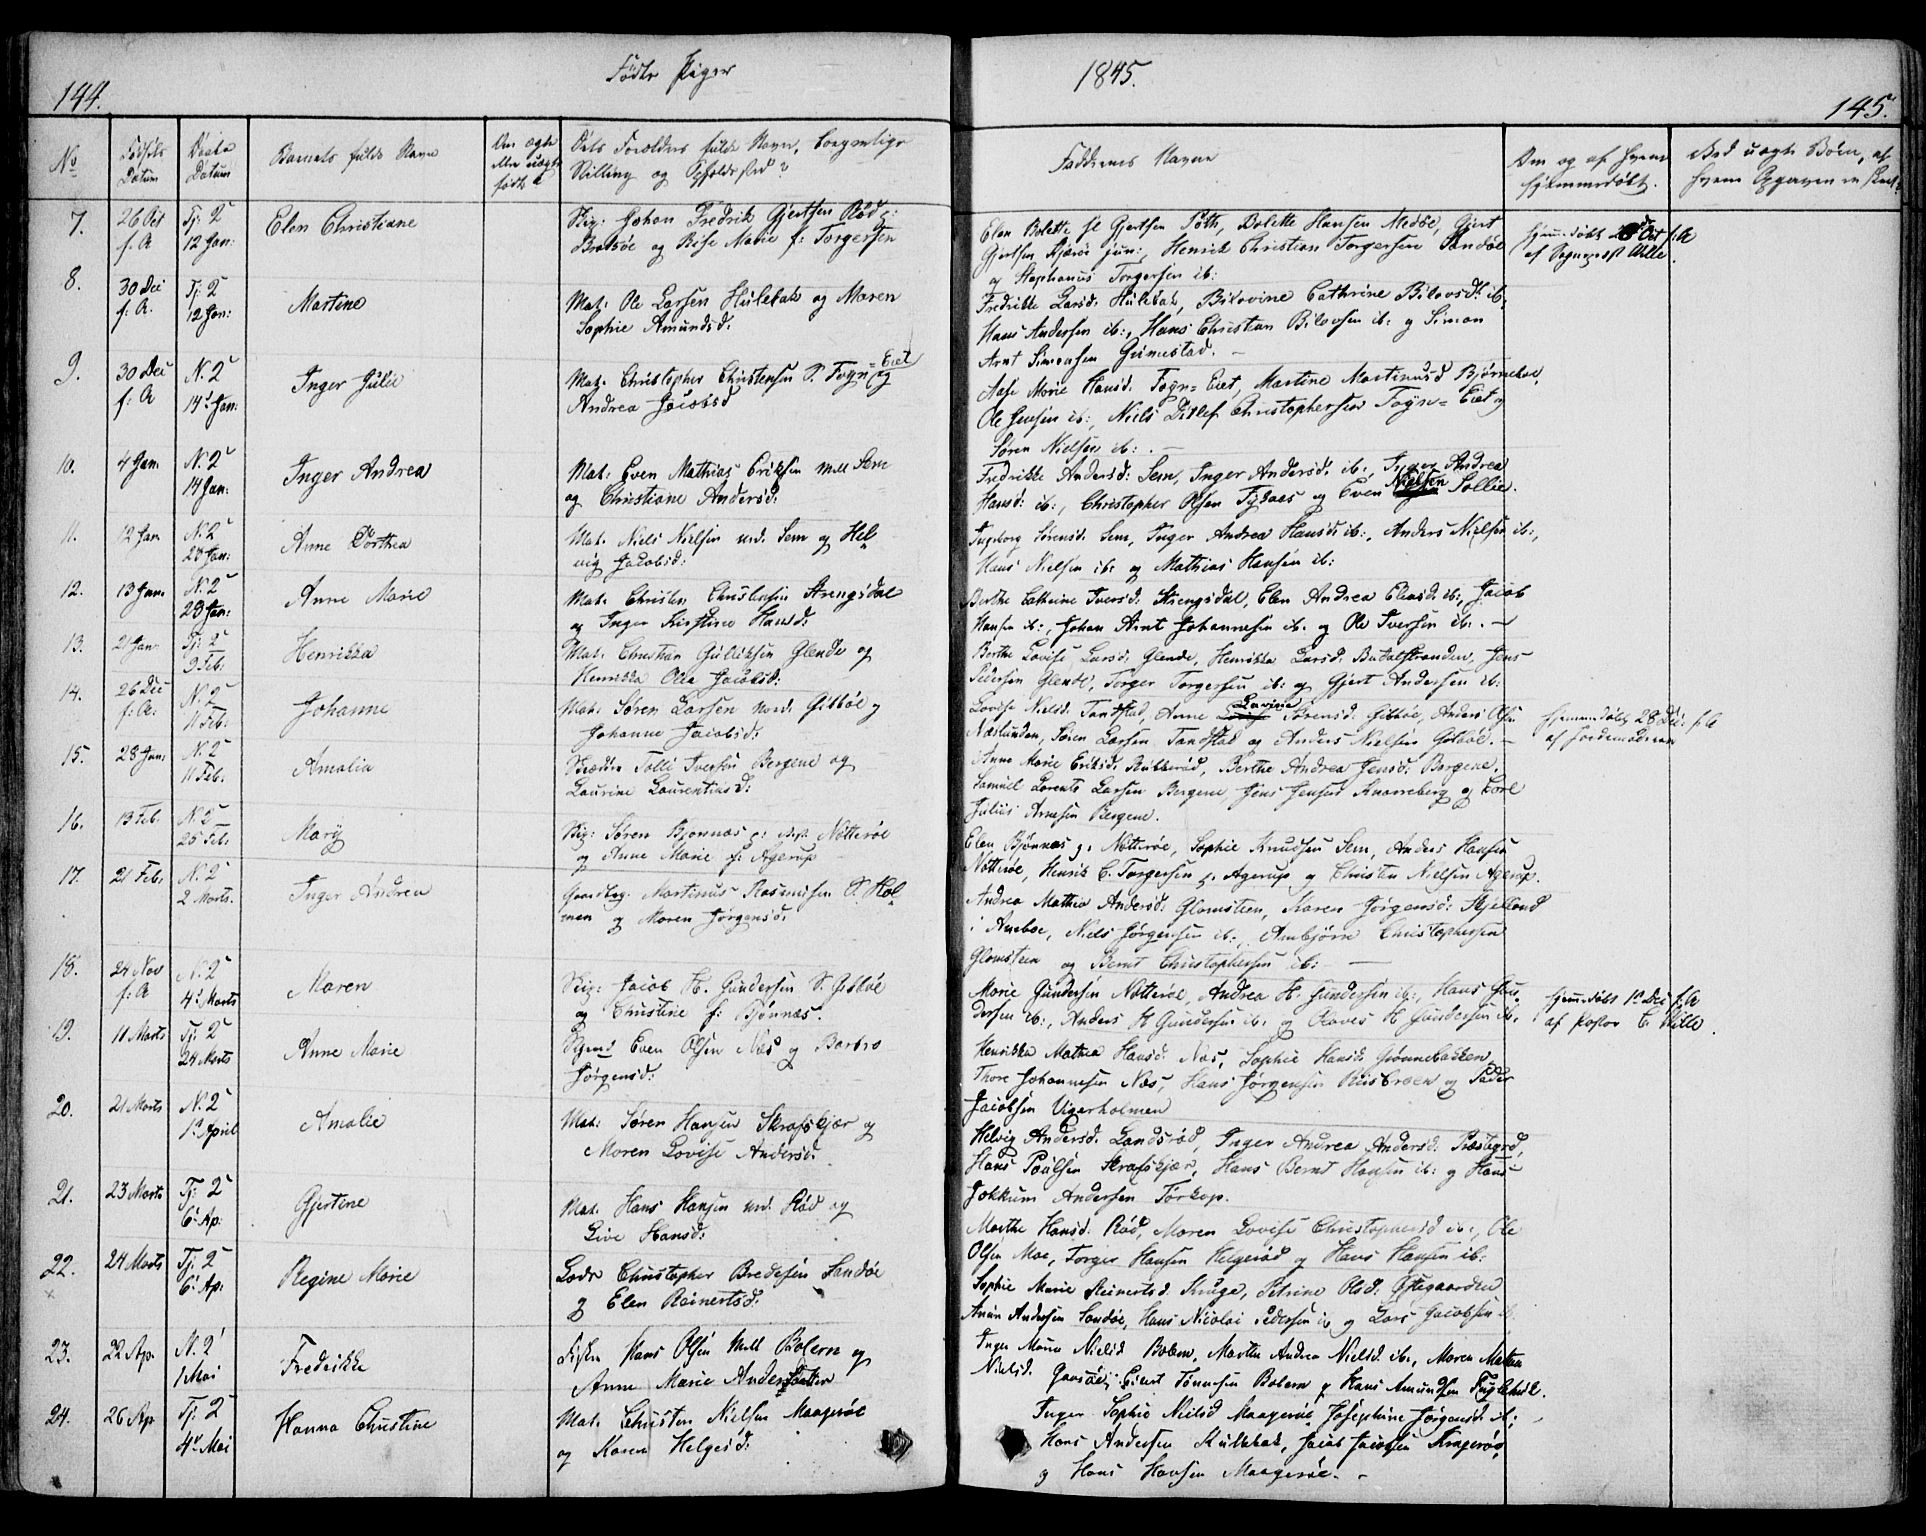 144.
Födte Piger
1845.
145.
No
Födsels Datum
Daabs Datum
Barnets fulde Navn
Om ægte eller uægte födt?
Dets Forældres fulde Navn, borgerlige Stilling og Opholdssted?
Faddernes Navne
Om og af hvem hjemmedöbt.
Ved uægte Börn, af hvem Opgaven er skeet
7.
26 Oct f. A
Tj: 2 12 Jan:
Elen Christiane
Skip: Johan Fredrik Gjertsen Röd
Bratsöe og Rise Marie f: Torgersen
Elen Bolette Gjertsen Bolette Hansen Medöe, Gjert
Gjertsen Kjæröe jun:, Henrik Christian Torgersen Sandöe
og Stephanus Torgersen ib:
af Sognepst Wille
8.
30 Dec f: A.
Tj: 2 12 Jan:
Martine
Mat: Ole Larsen Hulebak og Maren
Sophie Amundsd:
Fredrikke Larsd: Hulebak, Cathrine ib.
Hans Andersen ib:, Hans Christian ib: og Simon
Arnt Simensen Gimestad. –
9.
30 Dec f: A
N. 2 14 Jan:
Inger Julie
Mat: Christopher Christensen S. Fogn=Eiet og
Andrea Jacobsd
Aase Marie Hansd: Fogn=Eiet, Martine Martinusd Björneboe,
Ole Jensen ib:, Niels Ditlef Christophersen Fogn=Eiet og
Sören Nielsen ib: . –
10.
4 Jan
N. 2 14 Jan:
Inger Andrea
Mat: Even Mathias Eriksen Mell Sem
og Christiane Andersd:
Fredrikke Andersd: Sem, Inger Andersd: ib:, Inger Andrea
Hansd: ib:, Christopher Olsen og Even Nielsen Sollie.
11.
12 Jan
N. 2 28 Jan:
Anne Dorthea
Mat. Niels Nielsen ned. Sem og Hel
vig Jacobsd:
Ingeborg Sörensd: Sem, Inger Andrea Hansd: ib:, Anders Nielsen ib:,
Hans Nielsen ib: og Mathias Hansen ib:
12.
13 Jan
N. 2 28 Jan:
Anne Marie
Mat: Christen Christensen Strengsdal
og Inger Kirstine Hansd:
Berthe Cathrine Iversd: Strengsdal, Elen Andrea Eliasd: ib:, Jacob
Hansen ib:, Johan Arnt Johannesen ib. og Ole Iversen ib:. –
13.
21 Jan
Tj: 2 9 Feb:
Henrikka
Mat: Christian Gulliksen Glende og
Henrikka Olea Jacobsd:
Berthe Lovise Larsd: Glende, Henrikka Larsd: Budalstranden, Jens
Pedersen Glende, Torger Torgersen ib: og Gjert Andersen ib:
14.
26 Dec f: A:
N. 2 11 Feb:
Johanne
Mat: Sören Larsen nord. Gibböe og
Johanne Jacobsd:
Lovise Nielsd: Tandstad, Anne Lavinie Sörensd: Gibböe, Anders Olsen
Næslunden, Sören Larsen Tandstad og Anders Nielsen Gibböe. –
Hjemmedöbt 28 Dec: f: A
af Jordemoderen
15.
28 Jan:
N. 2 11 Feb:
Amalia
Skrædder Tolli Iversen Bergene og
Laurine Laurentiusd:
Anne Marie Eriksd: Rubberöd, Berthe Andrea Jensd: Bergene,
Samuel Lorents Larsen Bergene Jens Jensen Knarreberg og Carl
Julius Arnesen Bergene.
16.
13 Feb.
N. 2 25 Feb:
Mary
Skip: Sören Bjönnes p: Nötteröe
og Anne Marie f: Agerup
Elen Bjönnes p. Nötteröe, Sophie Knudsen Sem, Anders Hansen
Nötteröe, Henrik C. Torgersen p. Agerup og Christen Nielsen Agerup.
17.
21 Feb:
N. 2 2 Marts.
Inger Andrea
Gaardbrg. Martinus Rasmussen S. Hol
men og Maren Jörgensd:
Andrea Mathea Andersd: Glomsteen, Karen Jörgensd: Skjelland
i Aneboe, Niels Jörgensen ib:, Ambjörn Christophersen
Glomsteen og Bernt Christophersen ib: –
18.
24 Nov f: A
N. 2 4 Marts
Maren
Skip: Jacob H. Gundersen S. Gibböe
og Christine f: Bjönnes.
Marie Gundersen Nötteröe, Andrea H. Gundersen ib:, Hans Gun
dersen ib:, Anders H Gundersen ib. og Olaves H Gundersen ib.
Hjemmedöbt 1 Dec f: A
af Pastor C. Wille.
19.
11 Marts
Tj: 2 24 Marts
Anne Marie
Even Olsen Næs og Barbro
Jörgensd:
Henrikka Mathea Hansd: Næs, Sophie Hansd: Grönnebakken,
Thore Johannesen Næs, Hans Jörgensen og Peder
Jacobsen Vigerholmen
20.
21 Marts
N. 2 1 April
Amalie
Mat: Sören Hansen Skrafskjær og
Maren Lovise Andersd.
Helvig Andersd. Landsröd, Inger Andrea Andersd: Præstegrd,
Hans Poulsen Skrafskjær, Hans Bernt Hansen ib: og Hans
Jokkum Andersen Torkop.
21.
23 Marts
Tj: 2 6 Ap:
Gjertine
Mat. Hans Hansen ned. Röd og
Live Hansd:
Marthe Hansd: Röd, Maren Lovise Christophersd ib:, Ole
Olsen Moe, Torger Hansen Helgeröd og Hans Hansen ib:
22.
24 Marts
Tj: 2 6 Ap:
Regine Marie
Lods Christopher Bredesen Sandöe
og Elen Reinertsd:
Sophie Marie Reinertsd. Kruge, Petrine Olsd: Östegaarden
Andersen Sandöe, Hans Nicolai Pedersen ib og Lars Jacobsen ib.
23.
22 Ap.
N. 2 1 Mai
Fredrikke
Fisker Hans Olsen Mell Bolern og
Anne Marie Andersdatter
Inger Maria Nielsd Bolern, Marthe Andrea Nielsd. ib:, Maren Mathea
Nielsd. Gaasöe, Eivert Tönnesen Bolern og Hans Amundsen Fuglebæk.
24.
26 Ap
Tj: 2 4 Mai
Hanna Christine
Mat: Christen Nielsen Maageröe
og Karen Helgesd:
Inger Sophie Nielsd Maageröe Josephine Jörgensd: ib:,
Hans Andersen Hulebak, Jacob Jacobsen
og Hans Hansen Maageröe. –